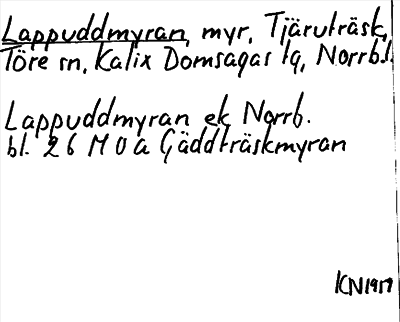 Lappuddmyran, myr, Tjäruträsk,
Töre sn, Kalix Domsagas tg, Norrb.l.
Lappuddmyran ek Norrb.
bl. 26 M 0 a Gäddträskmyran
KN 1917